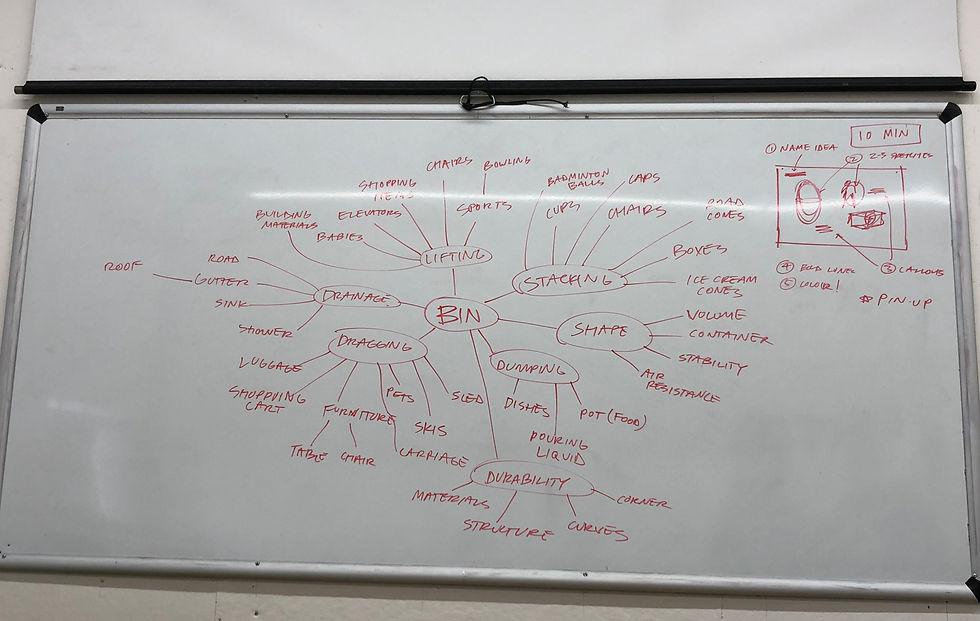 10 MIN
① NAME IDEA
② 2-3 SKETCHES
③ CALLOUTS
④ BOLD LINES
⑤ COLOUR!
* PIN-UP
BIN
LIFTING
BUILDING
MATERIALS
SHOPPING
ITEMS
ELEVATORS
BABIES
CHAIRS
BOWLING
SPORTS
STACKING
BADMINTON
BALLS
CUPS
CAPS
CHAIRS
ROAD
CONES
BOXES
ICE CREAM
CONES
SHAPE
VOLUME
CONTAINER
STABILITY
AIR
RESISTANCE
DUMPING
DISHES
POURING
LIQUID
POT (FOOD)
DURABILITY
MATERIALS
STRUCTURE
CURVES
CORNER
DRAGGING
LUGGAGE
SHOPPING
CART
FURNITURE
TABLE
CHAIR
PETS
CARRIAGE
SKIS
SLED
DRAINAGE
ROAD
GUTTER
ROOF
SINK
SHOWER